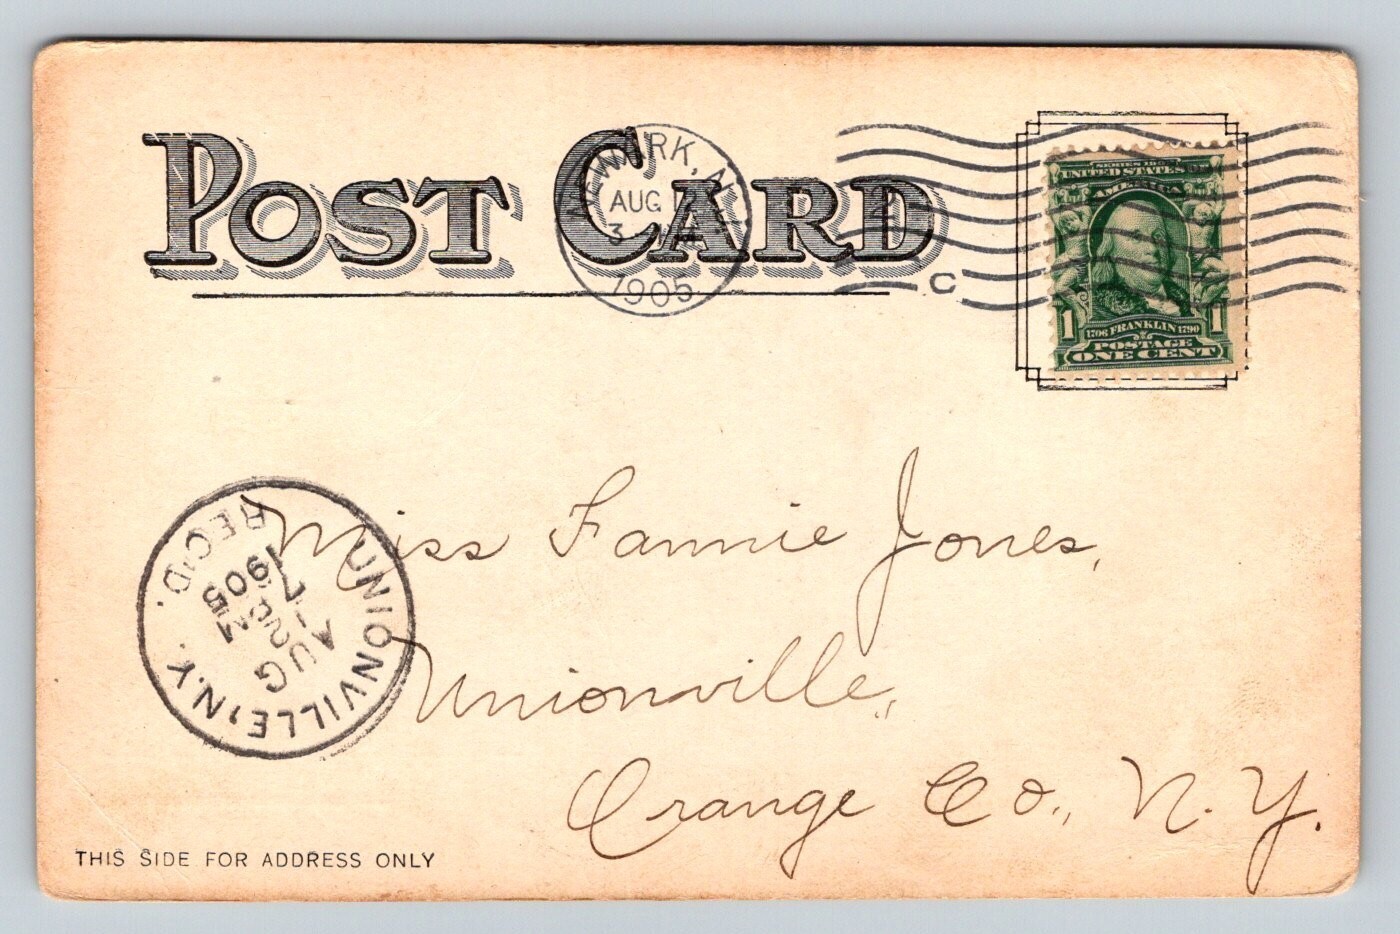 POST CARD
NEWARK, N.J.
AUG
3
1905
C
SERIES 1902
UNITED STATES OF
AMERICA
1 1706 FRANKLIN 1790 1
POSTAGE
ONE CENT
Miss Fannie Jones,
Unionville,
Orange Co., N.Y.
UNIONVILLE, N.Y.
AUG
7
M
1905
REC'D.
THIS SIDE FOR ADDRESS ONLY